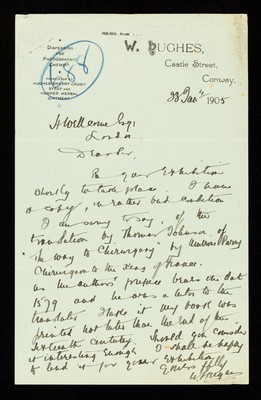 MEMO. from
W. HUGHES,
DISPENSING
AND
PHOTOGRAPHIC
CHEMIST
HUGHES' CHERRY COUGH
SYRUP AND
HUGHES' HERBAL
OINTMENT
Castle Street,
Conway,
1905
H Wellcome Esq
London
Dear Sir,
Re your Exhibition
shortly to take place. I have
a copy, in rather bad condition
I am sorry to say, of the
translation by Thomas Johnson of
"the way to Chirurgery" by Ambrose Parey
Chirurgeon to the King of France.
as the authors' preface bears the date
1579 and he was alive to the
translator I take it my book was
printed not later than the End of the
Sixteenth century. Should you consider
it interesting enough I shall be happy
to lend it for your Exhibition
Yours ffly
W Hughes